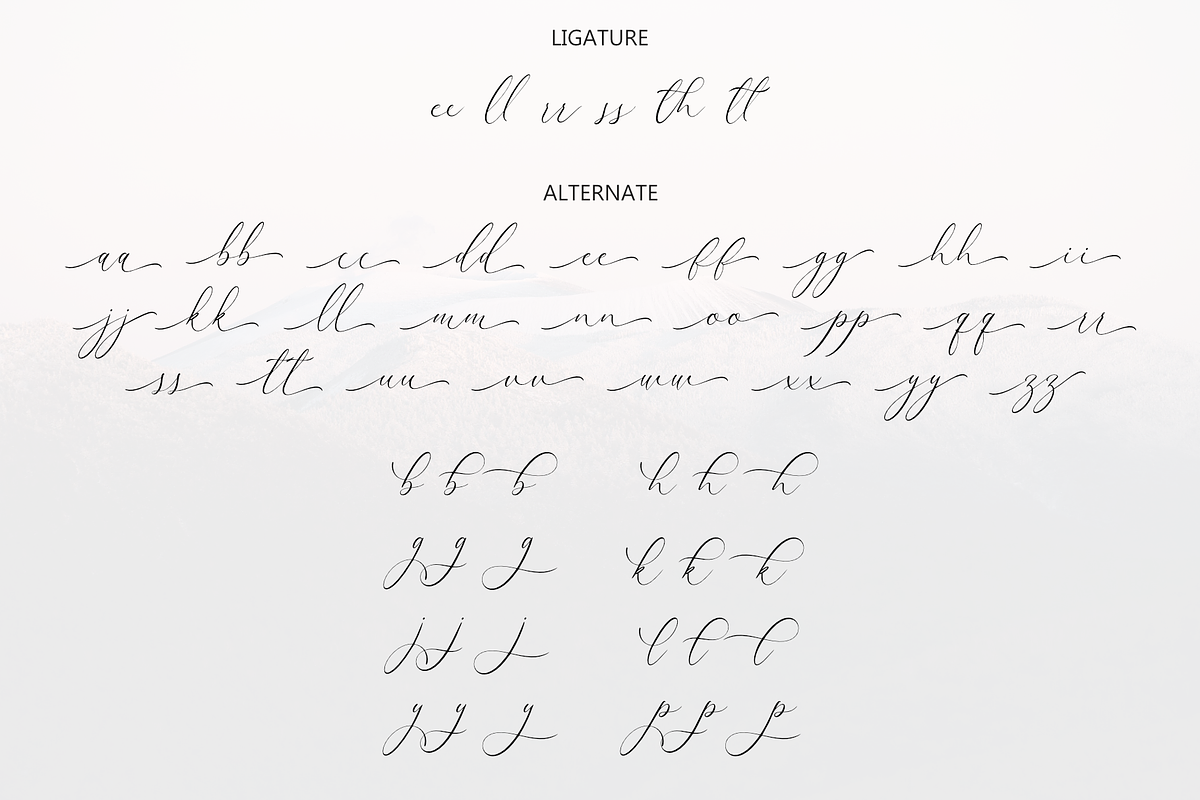 LIGATURE
ee ll rr ss th tt
ALTERNATE
aa bb cc dd ee ff gg hh ii
jj kk ll mm nn oo pp qq rr
ss tt uu vv ww xx yy zz
b b b h h h
g g g k k k
j j j l l l
y y y p p p